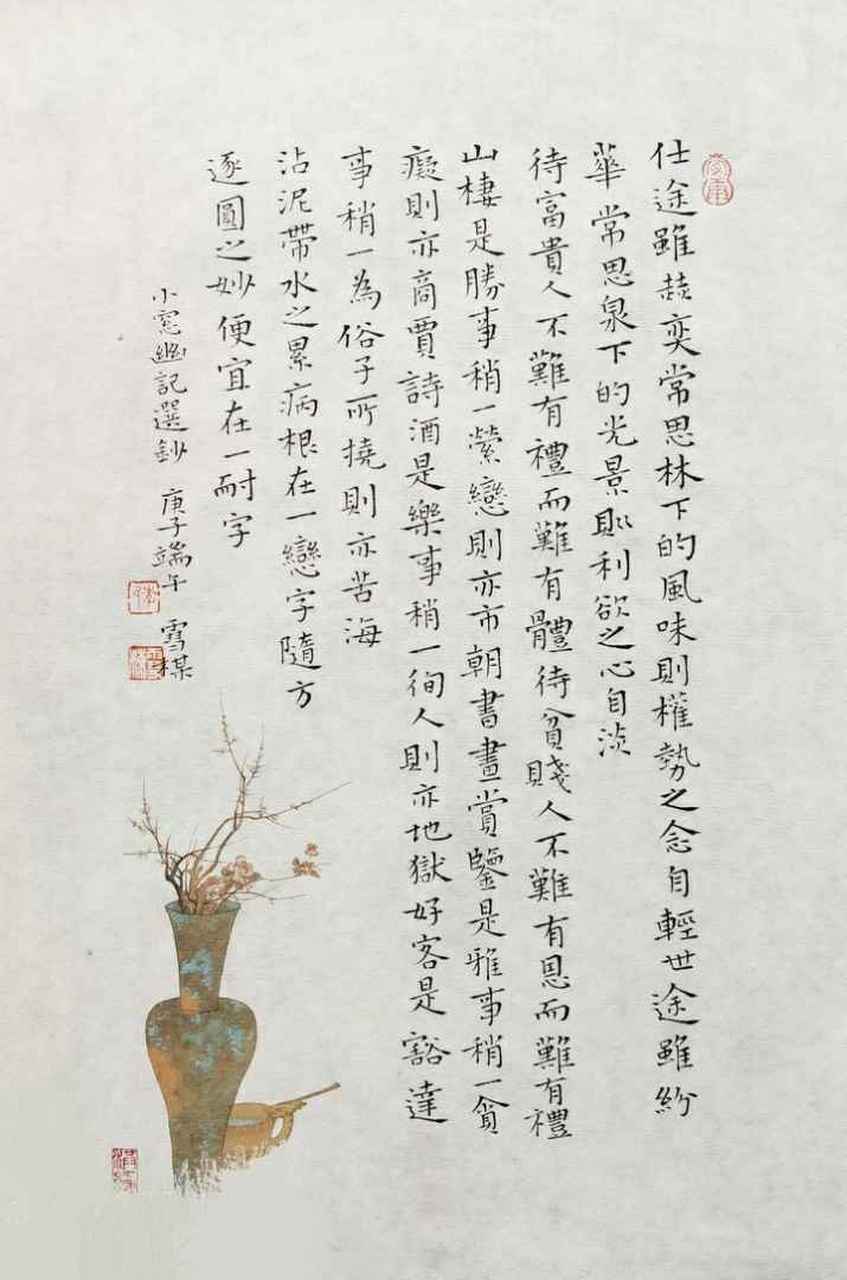 仕途雖赫奕常思林下的風味則權勢之念自輕世途雖紛
華常思泉下的光景則利欲之心自淡
待富貴人不難有禮而難有體待貧賤人不難有恩而難有禮
山棲是勝事稍一縈戀則亦市朝書畫賞鑒是雅事稍一貪
癡則亦商賈詩酒是樂事稍一徇人則亦地獄好客是豁達
事稍一為俗子所撓則亦苦海
沾泥帶水之累病根在一戀字隨方
逐圓之妙便宜在一耐字
小窓幽記選鈔 庚子端午 雪楳